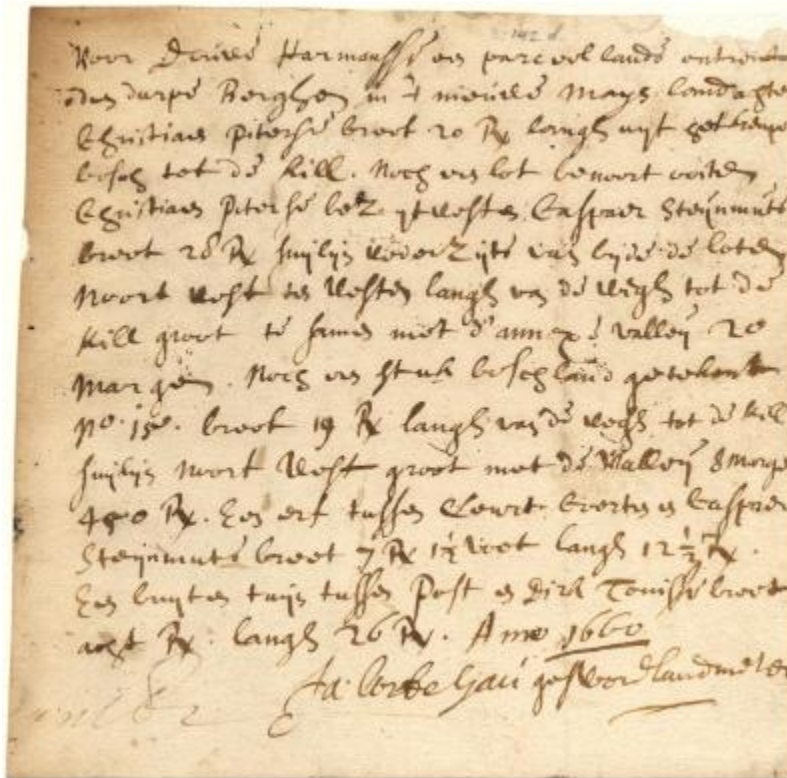 142 d
Voor Douwe Harmansse een parceel lands ontrent
den durpe Berghen in 't nieuwe Mays land agter
Christiaen Pitersse breet 20 R langh uyt het
bosch tot de kill. Noch een lot benoort oosten
Christiaen Pitersse bez. ytwesten Casper Steynmets
breet 28 R suylyn wederzyts van beyde de loten
Noort West ten Westen langh van de wegh tot de
kill groot te samen met d'annexe valley 20
Margen. Noch een stuk bosch land getekent
No. 150. breet 19 R langh van de wegh tot de kill
suylyn Noort West groot met de Valley 8 Morge
450 R. Een erf tussen Couert Coerten en Casper
Steynmets breet 7 R 1½ voet langh 12½ R.
Een buyten tuyn tussen Post en Dirk Tonisse breet
acht R. langh 26 R. Anno 1660
Ja. Cortelyau geswoor landmeter